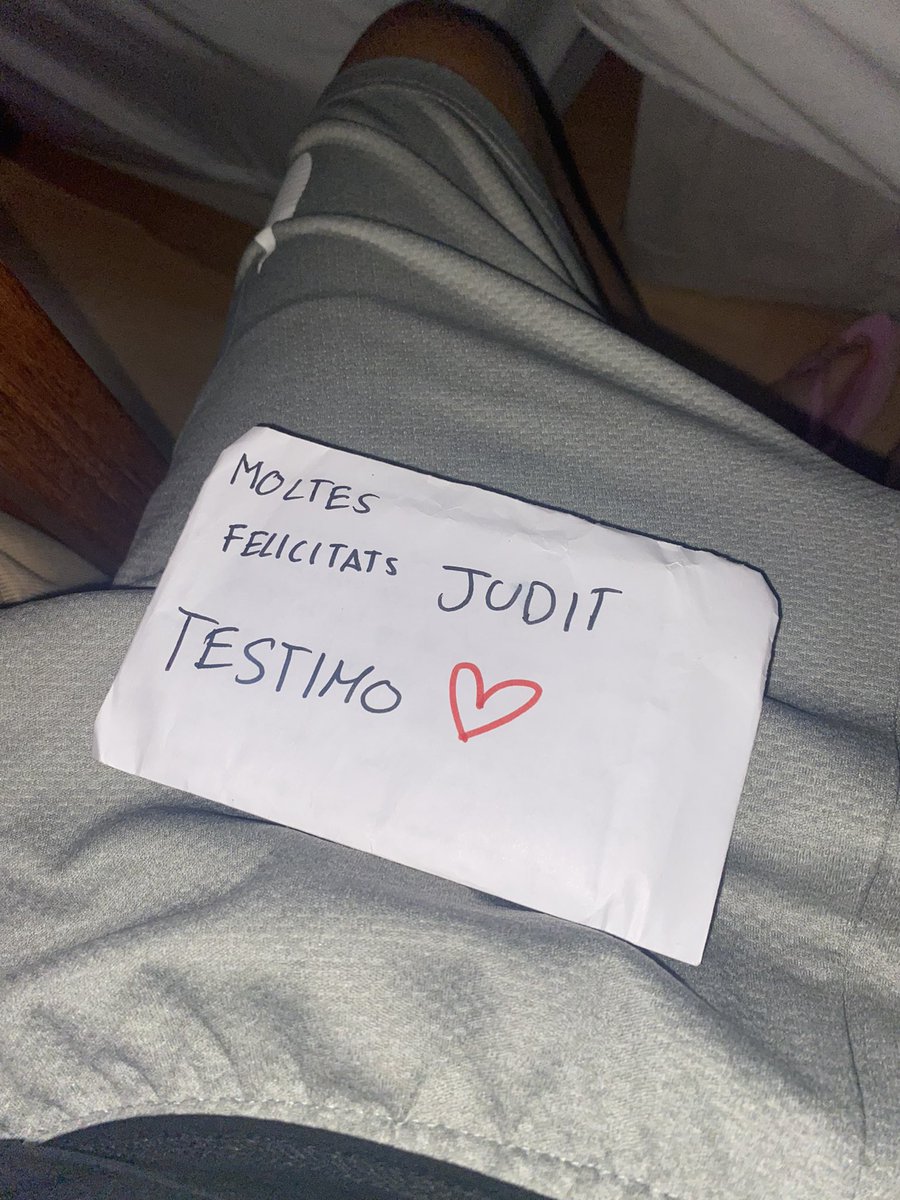 MOLTES
FELICITATS JUDIT
TESTIMO